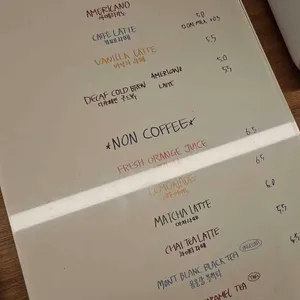 AMERICANO
아메리카노
CAFE LATTE 5.0
카페라떼 OATMILK +0.5
VANILLA LATTE 5.5
바닐라 라떼
DECAF COLD BREW AMERICANO 5.0
LATTE 5.5
디카페인 콜드브루
*NON COFFEE*
FRESH ORANGE JUICE 6.5
LEMONADE 6.5
MATCHA LATTE 6.0
말차라떼
CHAI TEA LATTE 6.5
차이티라떼
MONT BLANC BLACK TEA
몽블랑 블랙티
CARAMEL TEA